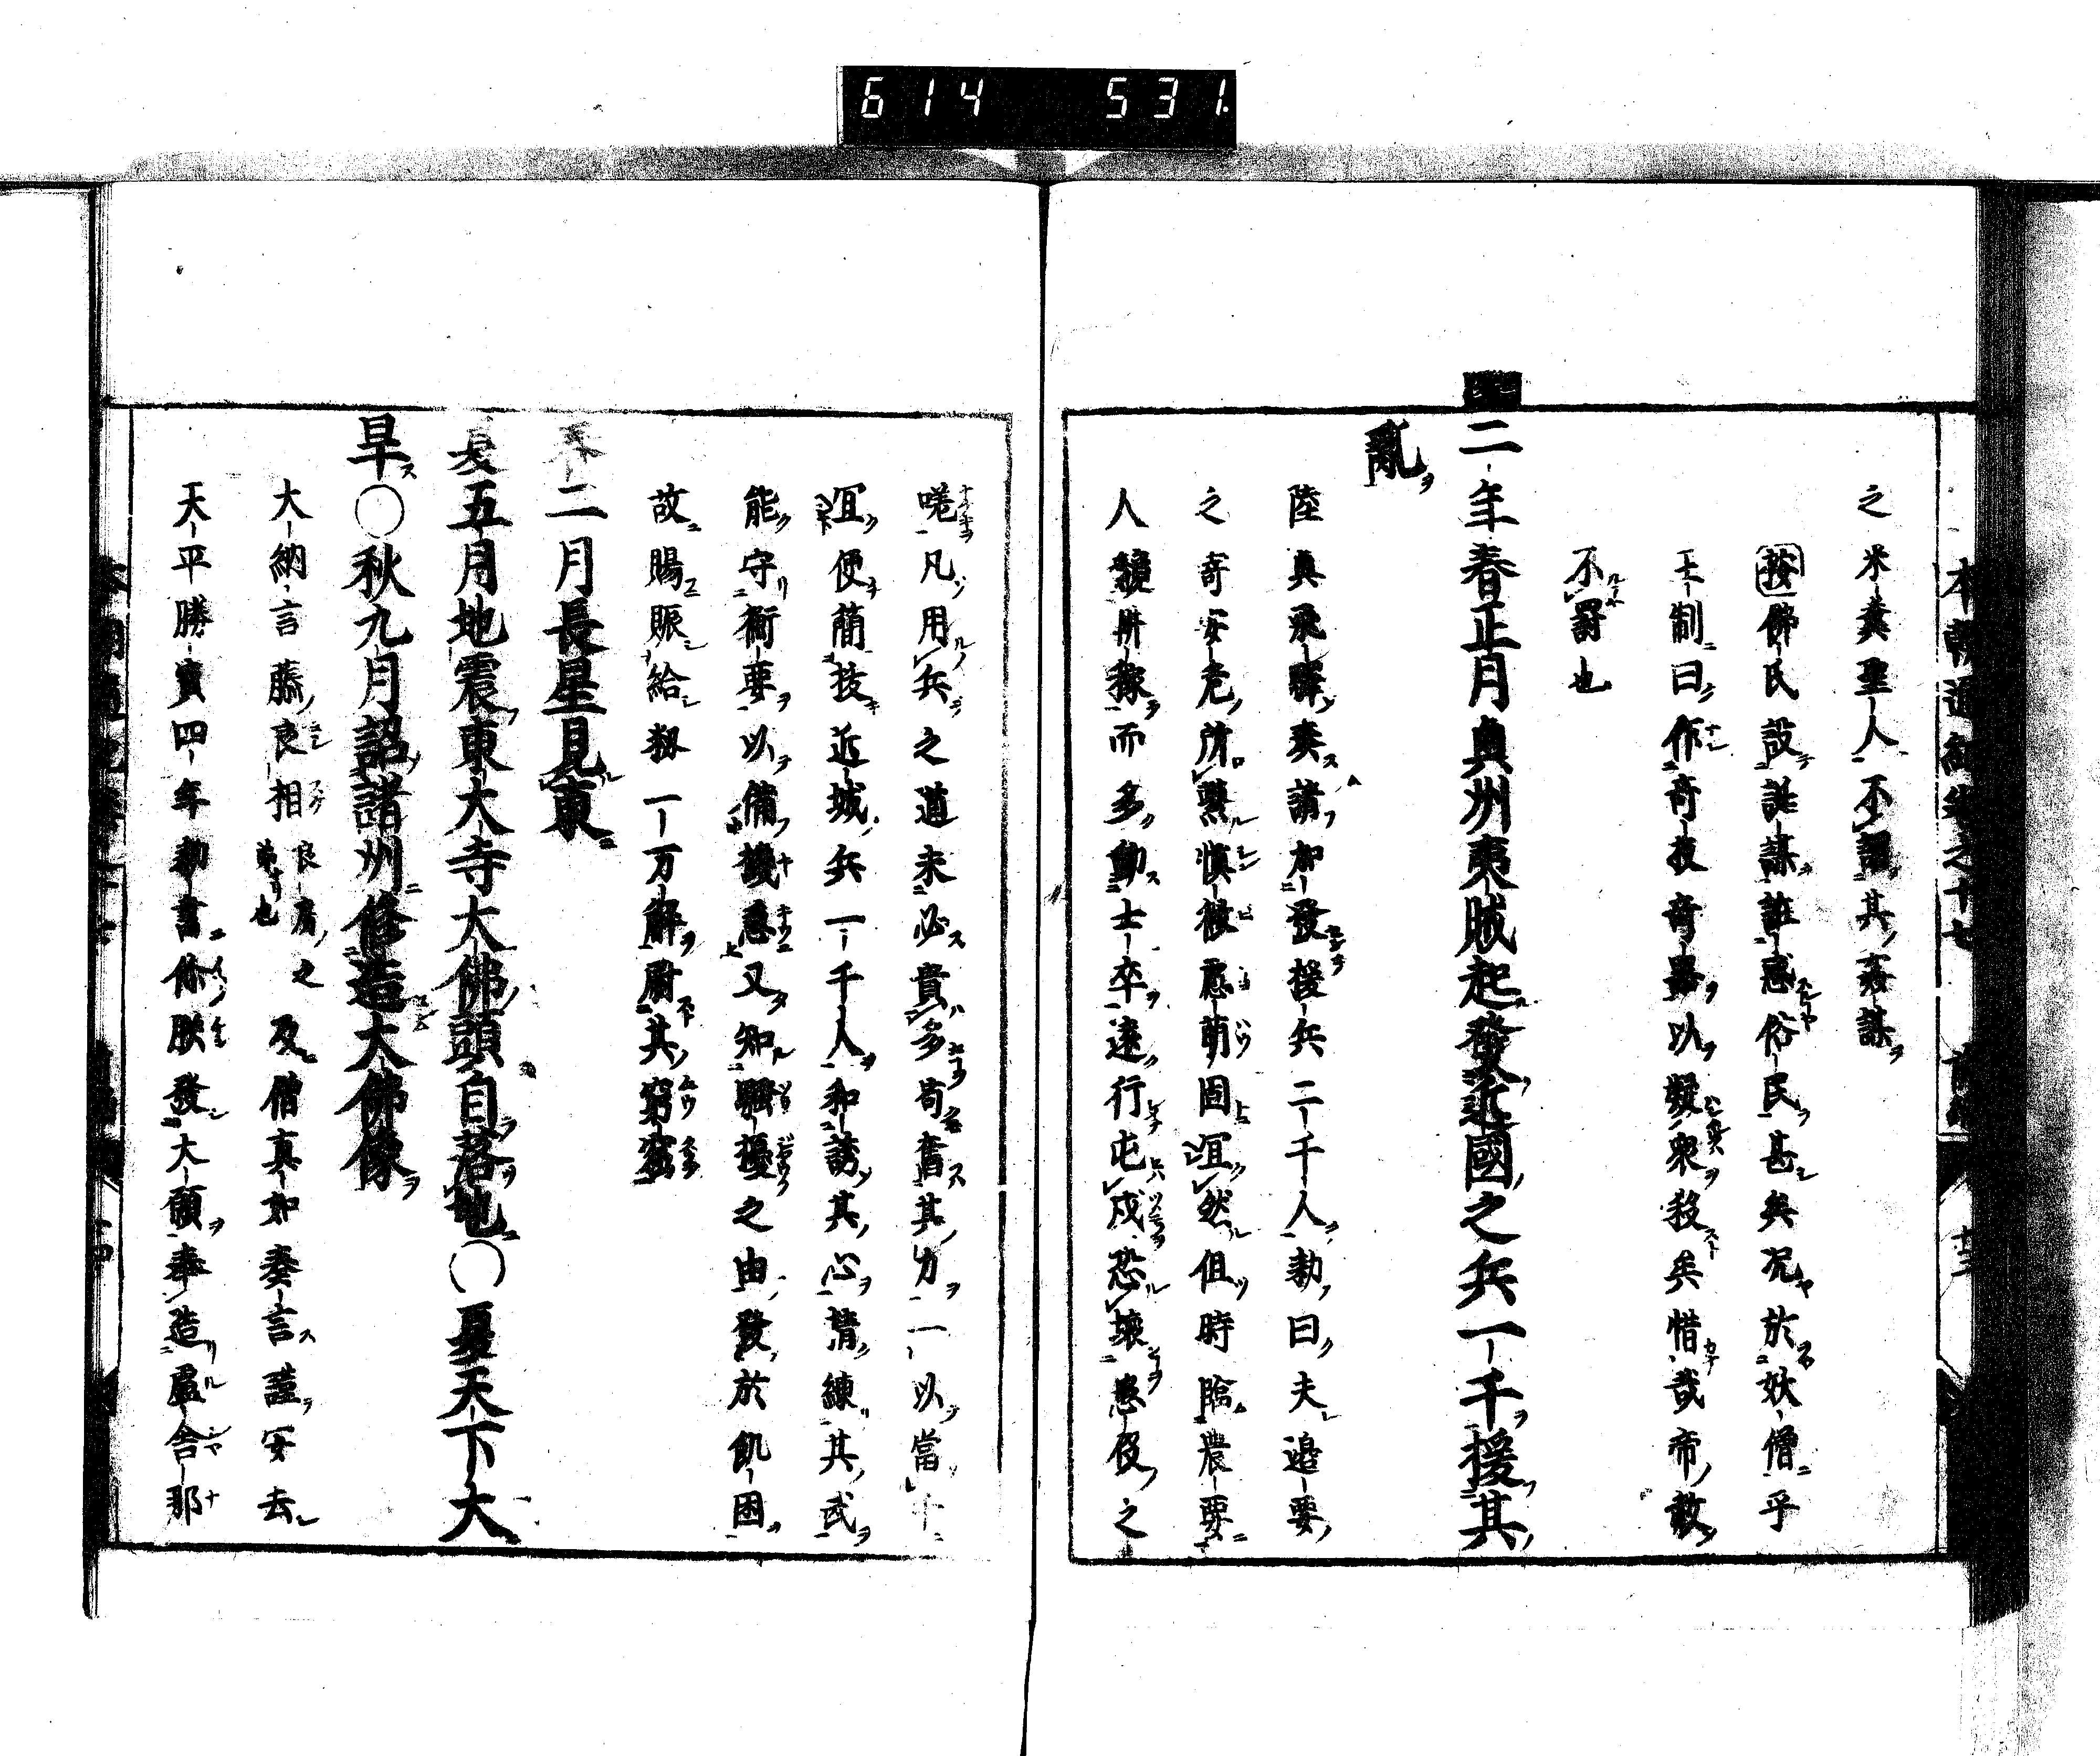 614 531
本朝通紀卷之十七
之米糞聖人不謂其姦謀
按佛氏設詐謀誑惑俗民甚矣况於妖僧乎
王制曰作奇技奇器以疑衆殺矣惜哉帝敢
不罰也
二年春正月奥州夷賊起發近國之兵一千援其
亂
陸奥飛驛奏請加發援兵二千人勅曰夫邊要
之寄安危所繫慎微慮萌固宜然但時臨農要
人競耕稼而多動士卒遠行屯戍恐壞邊役之
嗟凡用兵之道未必貴多苟奮其力一以當千
宜便簡技近城兵一千人和誘其心精練其武
能守衝要以備機急又知騷擾之由發於飢困
故賜賑給穀一万斛尉其窮弊
春二月長星見東
夏五月地震東大寺大佛頭自落地〇夏天下大
旱〇秋九月詔諸州修造大佛像
大納言藤良相良房之弟也及僧真如奏言謹案去
天平勝寳四年勅書偁朕發大願奉造盧舎那